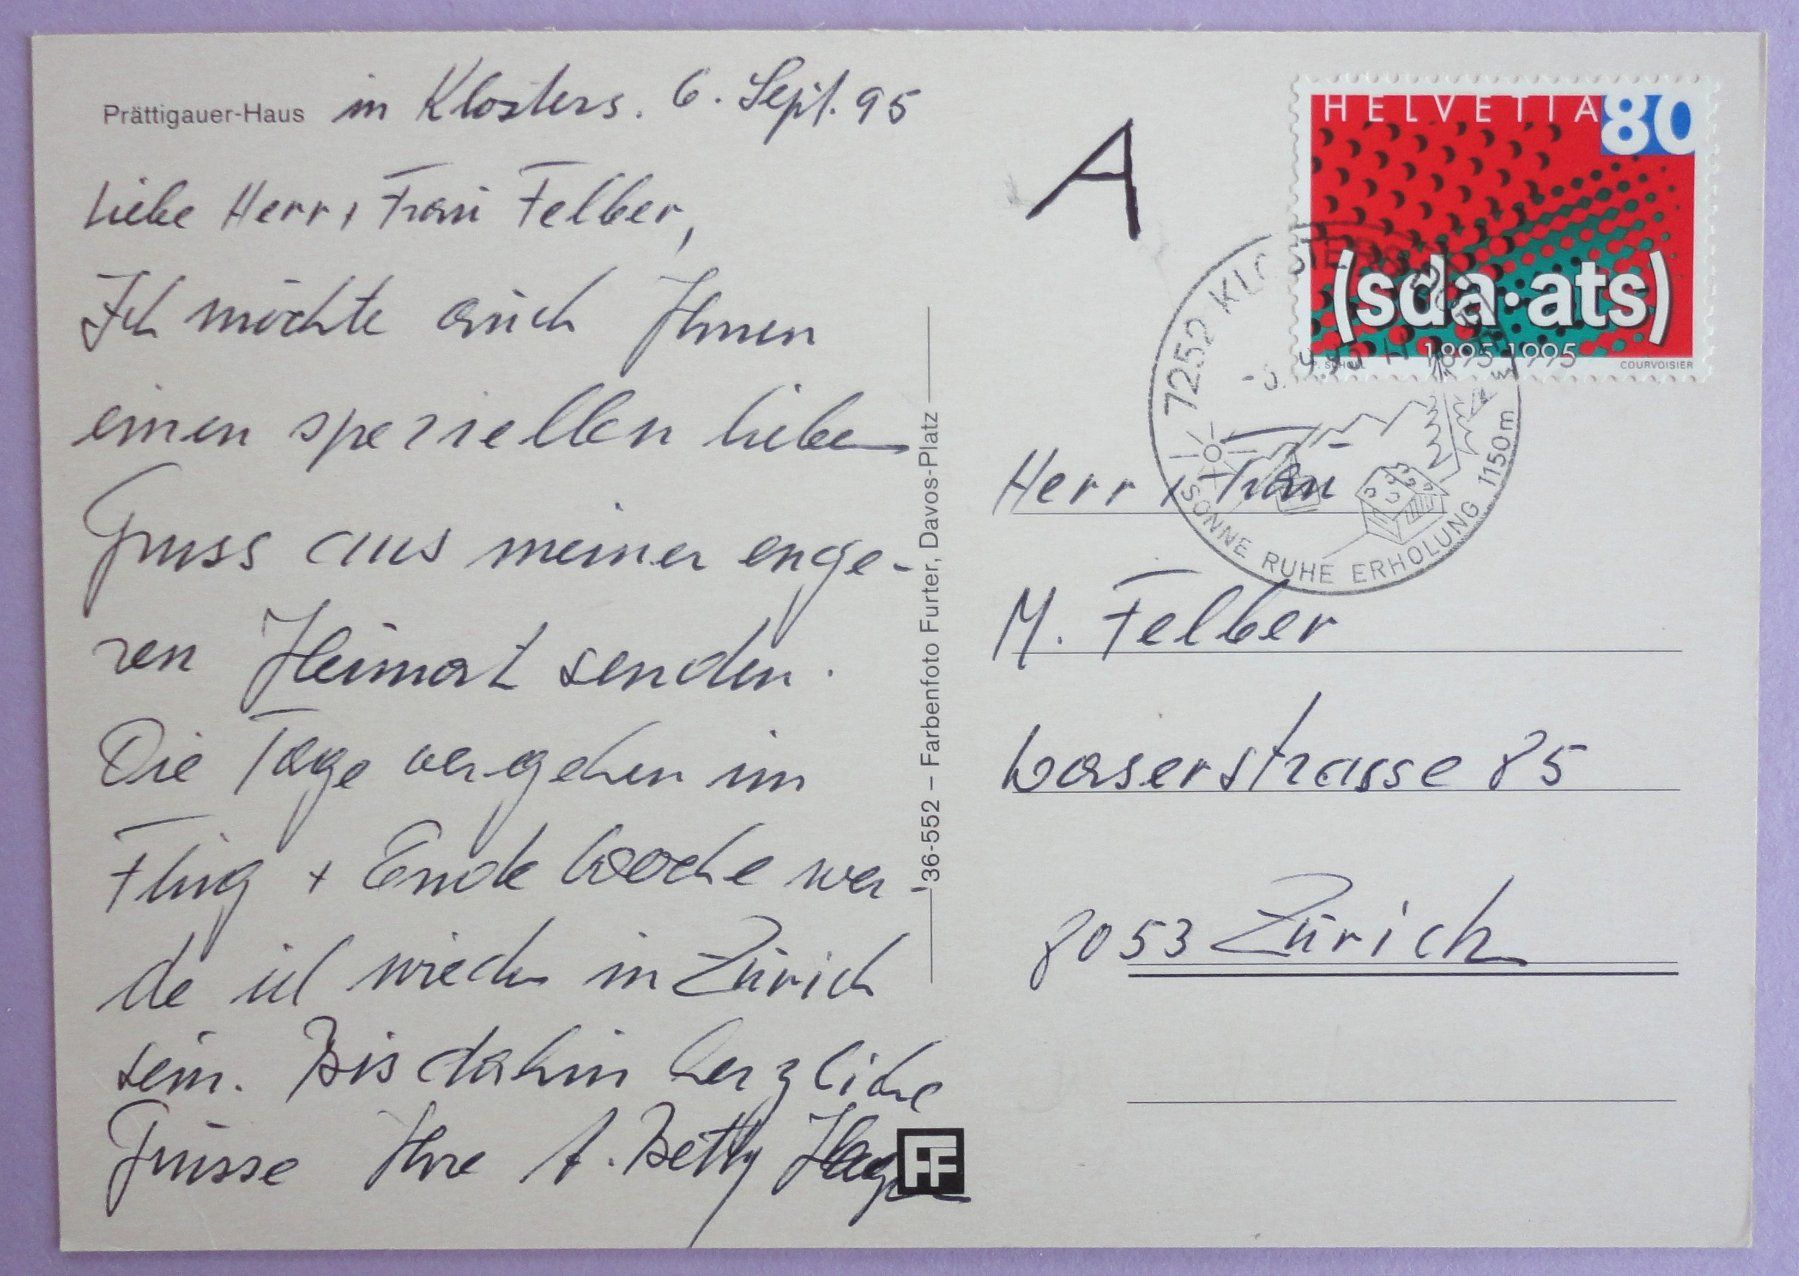 Prättigauer-Haus in Klosters. 6. Sept. 95
Liebe Herr + Frau Felber,
Ich möchte auch Ihnen
einen speziellen lieben
Gruss aus meiner enge-
ren Heimat senden.
Die Tage vergehen im
Flug + Ende Woche wer-
de ich wieder in Zürich
sein. Bis dahin herzliche
Grüsse Ihre A. Betty
FF
36-552 – Farbenfoto Furter, Davos-Platz
A
HELVETIA 80
(sda·ats)
1895 1995
COURVOISIER
7252 KLOSTERS
SONNE RUHE ERHOLUNG 1150 m
Herr + Frau
M. Felber
Waserstrasse 85
8053 Zürich